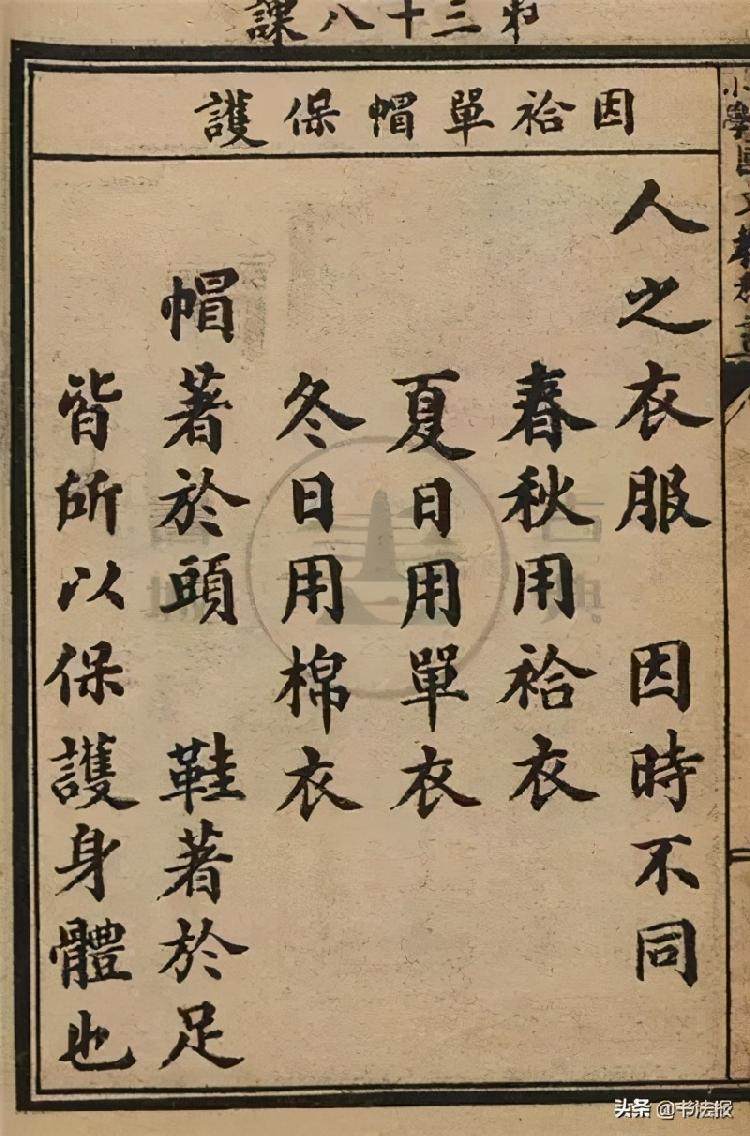 第三十八課
因袷單帽保護
小學國文教科書
人之衣服　因時不同
春秋用袷衣
夏日用單衣
冬日用棉衣
帽著於頭　鞋著於足
皆所以保護身體也
頭条 @书法报